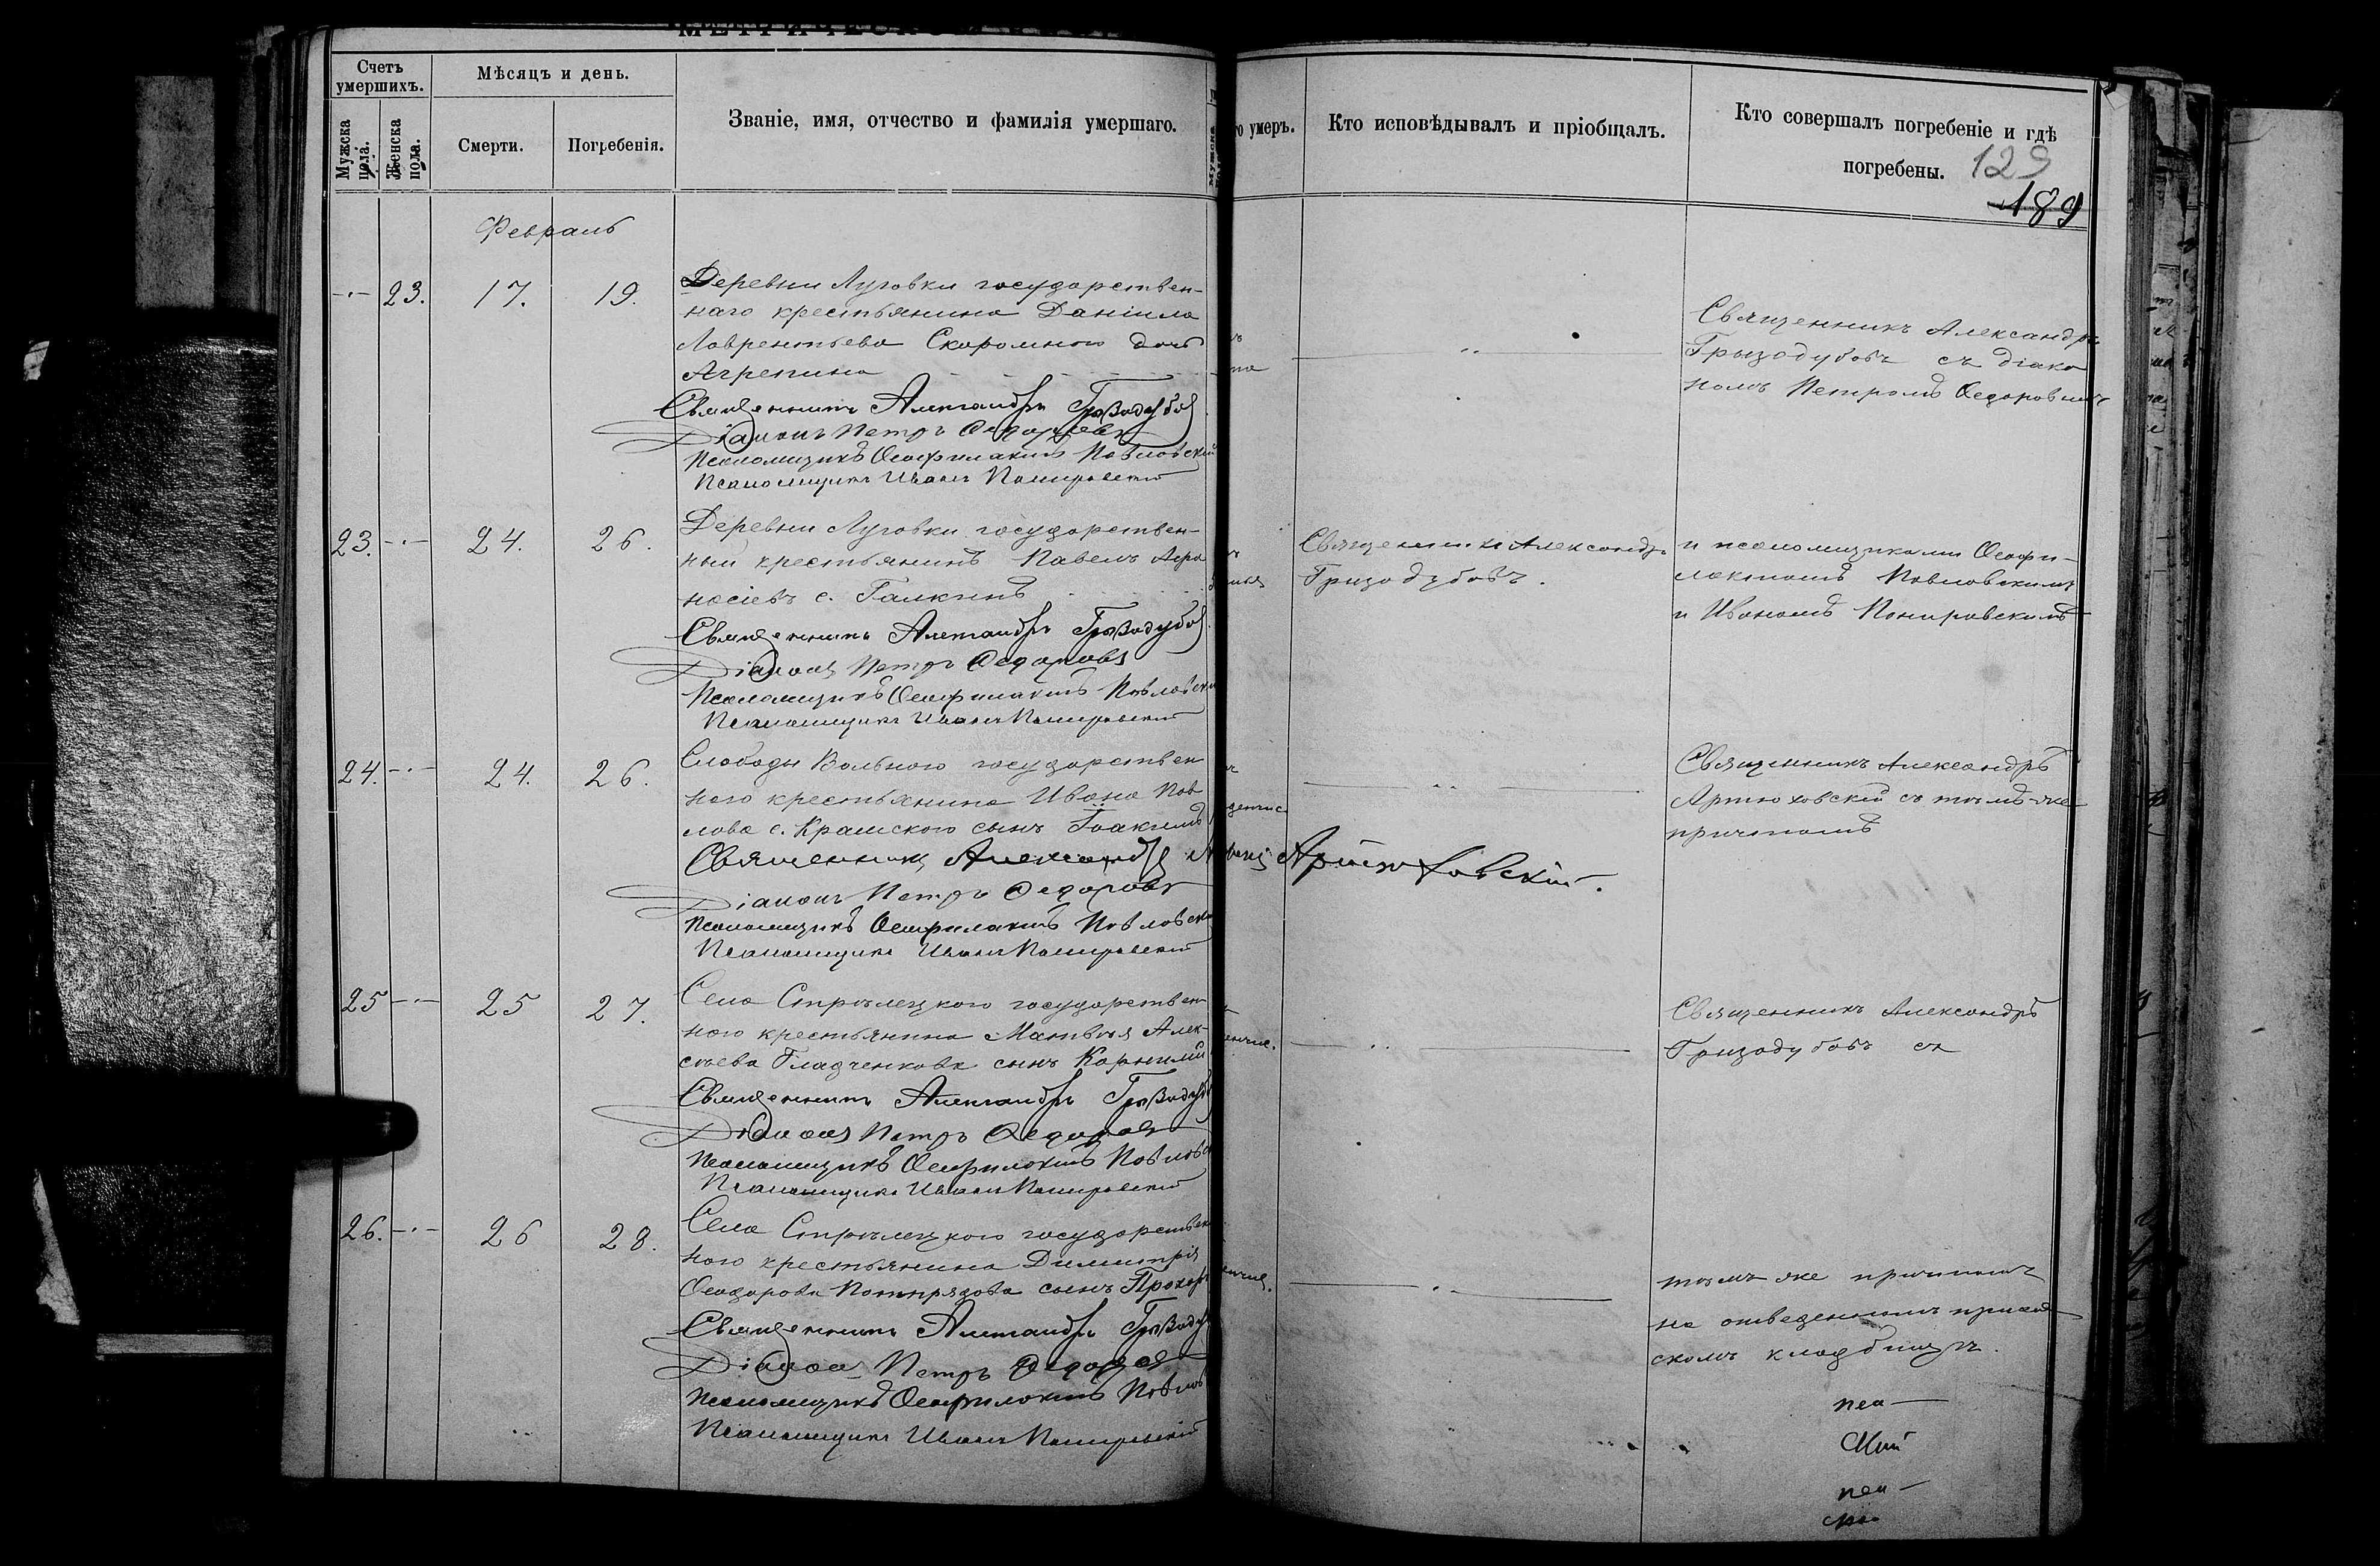 Счетъ умершихъ.
Мѣсяцъ и день.
Званіе, имя, отчество и фамилія умершаго.
Мужска пола.
Женска пола.
Смерти.
Погребенія.
го умеръ.
Кто исповѣдывалъ и пріобщалъ.
Кто совершалъ погребеніе и гдѣ
погребены.
129
189
Февраль
23. 17. 19.
Деревни Луговки государствен-
наго крестьянина Даніила
Лаврентьева Скоромного дочь
Агрепина
Священникъ Александръ Гризодубов
Діаконъ Петръ Федоровъ
Псаломщикъ Феофилактъ Павловскій
Псаломщикъ Иванъ Понировскій
Священникъ Александръ
Гризодубовъ съ діако
номъ Петромъ Федоровымъ
23. 24. 26.
Деревни Луговки государствен-
ный крестьянинъ Павелъ Афа
насіевъ с. Галкинъ
Священникъ Александръ Гризодубов
Діаконъ Петръ Федоровъ
Псаломщикъ Феофилактъ Павловскі
Псаломщикъ Иванъ Понировскій
Священникъ Александръ
Гризодубовъ.
и псаломщиками Феофи-
лактомъ Павловскимъ
и Иваномъ Понировскимъ
24. 24. 26.
Слободы Вольного государствен
ного крестьянина Ивана Пав
лова с. Крамского сынъ Іоакимъ
Священникъ Александръ Артюховскій.
Діаконъ Петръ Федоровъ
Псаломщикъ Феофилактъ Павловск
Псаломщикъ Иванъ Понировскій
Священникъ Александръ
Артюховскій съ тѣмъ-же
причтомъ
25 25 27.
Села Стрѣлецкого государствен
ного крестьянина Матвѣя Алек-
сѣева Гладченкова сынъ Корнилій
Священникъ Александръ Гризодуб
Діаконъ Петръ Федоровъ
Псаломщикъ Феофилактъ Павлов
Псаломщикъ Иванъ Понировскій
Священникъ Александръ
Гризодубовъ съ
26. 26 28.
Села Стрѣлецкого государствен
ного крестьянина Димитрія
Феодорова сынъ Прохоръ
Священникъ Александръ Гризоду
Діаконъ Петръ Федоровъ
Псаломщикъ Феофилактъ Павлов
Псаломщикъ Иванъ Понировскій
тѣмъ же причтомъ
на отведенномъ приход
скомъ кладбищѣ.